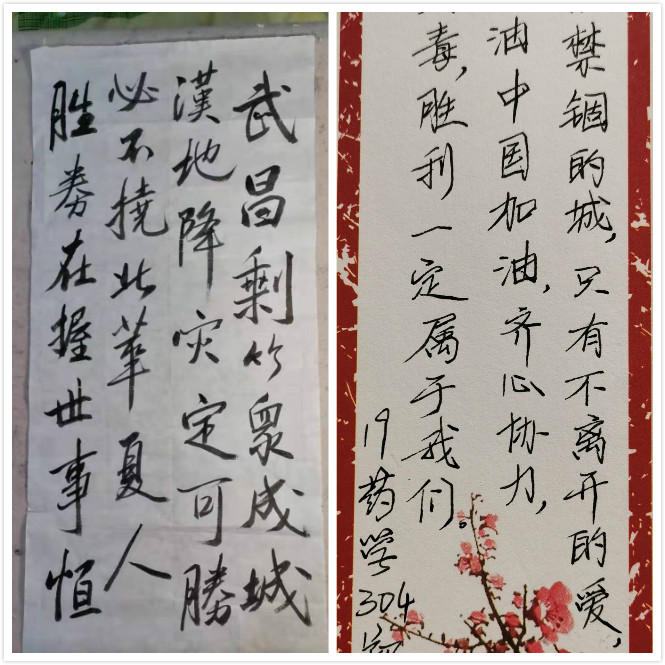 武昌剩竹众成城
漢地降灾定可勝
必不撓此華夏人
胜券在握世事恒
禁锢的城,只有不离开的爱,
油中国加油,齐心协力,
毒,胜利一定属于我们。
19药学304